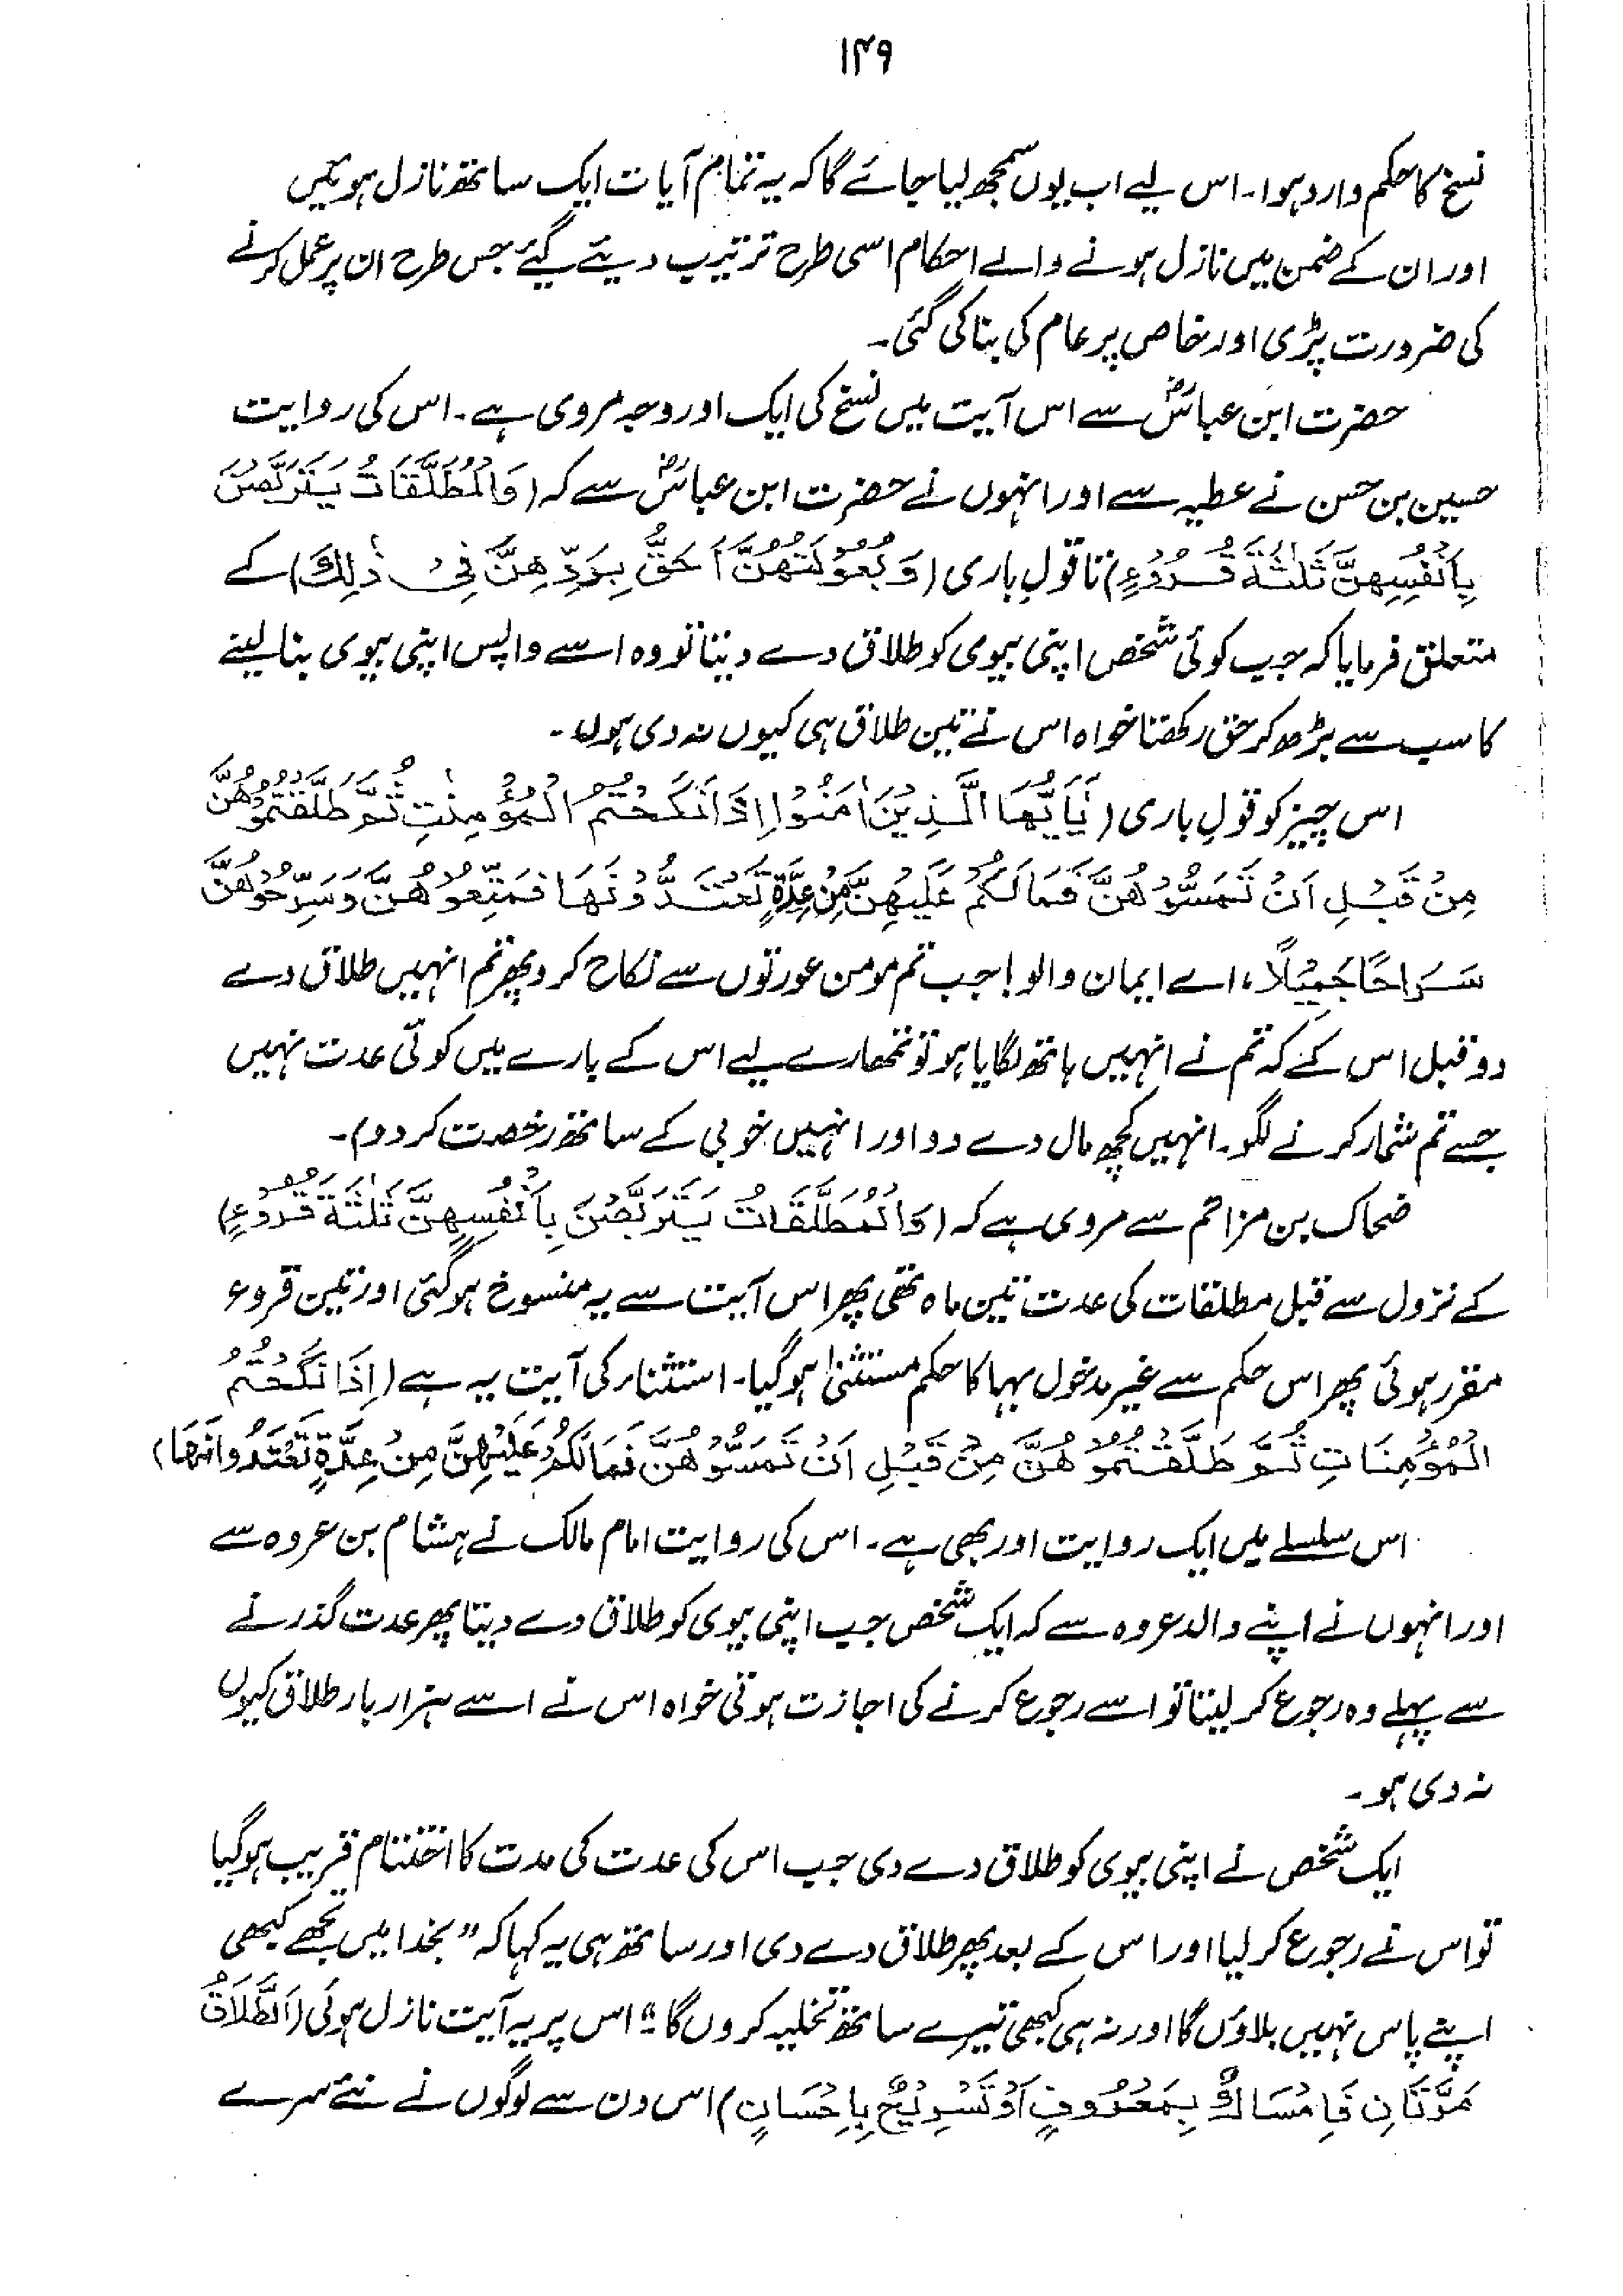 ۱۴۹
نسخ کا حکم وارد ہوا۔ اس لیے اب یوں سمجھ لیا جائے گا کہ یہ تمام آیات ایک ساتھ نازل ہوئیں
اور ان کے ضمن میں نازل ہونے والے احکام اسی طرح ترتیب دیئے گیئے جس طرح ان پر عمل کرنے
کی ضرورت پڑی اور خاص پر عام کی بنا کی گئی۔
حضرت ابن عباسؓ سے اس آیت میں نسخ کی ایک اور وجہ مروی ہے۔ اس کی روایت
حسین بن حسن نے عطیہ سے اور انہوں نے حضرت ابن عباسؓ سے کہ (وَالْمُطَلَّقَاتُ يَتَرَبَّصْنَ
بِاَنْفُسِهِنَّ ثَلٰثَةَ قُرُوْءٍ) تا قولِ باری (وَبُعُوْلَتُهُنَّ اَحَقُّ بِرَدِّهِنَّ فِیْ ذٰلِكَ) کے
متعلق فرمایا کہ جب کوئی شخص اپنی بیوی کو طلاق دے دیتا تو وہ اسے واپس اپنی بیوی بنا لینے
کا سب سے بڑھ کر حق رکھتا خواہ اس نے تین طلاق ہی کیوں نہ دی ہوں۔
اس چیز کو قولِ باری (يٰٓاَيُّهَا الَّذِيْنَ اٰمَنُوْا اِذَا نَكَحْتُمُ الْمُؤْمِنٰتِ ثُمَّ طَلَّقْتُمُوْهُنَّ
مِنْ قَبْلِ اَنْ تَمَسُّوْهُنَّ فَمَا لَكُمْ عَلَيْهِنَّ مِنْ عِدَّةٍ تَعْتَدُّوْنَهَا فَمَتِّعُوْهُنَّ وَسَرِّحُوْهُنَّ
سَرَاحًا جَمِيْلًا، اے ایمان والو! جب تم مومن عورتوں سے نکاح کرو پھر تم انہیں طلاق دے
دو قبل اس کے کہ تم نے انہیں ہاتھ لگایا ہو تو تمھارے لیے اس کے بارے میں کوئی عدت نہیں
جسے تم شمار کرنے لگو۔ انہیں کچھ مال دے دو اور انہیں خوبی کے ساتھ رخصت کر دو)۔
ضحاک بن مزاحم سے مروی ہے کہ (وَالْمُطَلَّقَاتُ يَتَرَبَّصْنَ بِاَنْفُسِهِنَّ ثَلٰثَةَ قُرُوْءٍ)
کے نزول سے قبل مطلقات کی عدت تین ماہ تھی پھر اس آیت سے یہ منسوخ ہو گئی اور تین قروء
مقرر ہوئی پھر اس حکم سے غیر مدخول بہا کا حکم مستثنیٰ ہو گیا۔ استثناء کی آیت یہ ہے (اِذَا نَكَحْتُمُ
الْمُؤْمِنَاتِ ثُمَّ طَلَّقْتُمُوْهُنَّ مِنْ قَبْلِ اَنْ تَمَسُّوْهُنَّ فَمَا لَكُمْ عَلَيْهِنَّ مِنْ عِدَّةٍ تَعْتَدُّوانَهَا)
اس سلسلے میں ایک روایت اور بھی ہے۔ اس کی روایت امام مالک نے ہشام بن عروہ سے
اور انہوں نے اپنے والد عروہ سے کہ ایک شخص جب اپنی بیوی کو طلاق دے دیتا پھر عدت گذرنے
سے پہلے وہ رجوع کر لیتا تو اسے رجوع کرنے کی اجازت ہوتی خواہ اس نے اسے ہزار بار طلاق کیوں
نہ دی ہو۔
ایک شخص نے اپنی بیوی کو طلاق دے دی جب اس کی عدت کی مدت کا اختتام قریب ہو گیا
تو اس نے رجوع کر لیا اور اس کے بعد پھر طلاق دے دی اور ساتھ ہی یہ کہا کہ ”بخدا میں تجھے کبھی
اپنے پاس نہیں بلاؤں گا اور نہ ہی کبھی تیرے ساتھ تخلیہ کروں گا“۔ اس پر یہ آیت نازل ہوئی (اَلطَّلَاقُ
مَرَّتَانِ فَاِمْسَاكٌ بِمَعْرُوْفٍ اَوْ تَسْرِيْحٌ بِاِحْسَانٍ) اس دن سے لوگوں نے نئے سرے